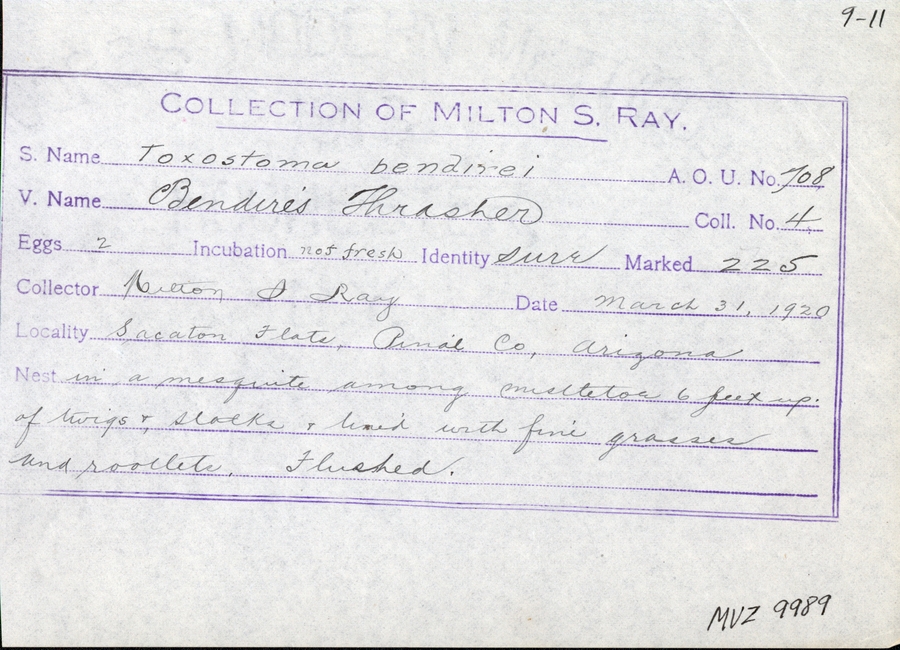 9-11
COLLECTION OF MILTON S. RAY.
S. Name Toxostoma bendirei A. O. U. No. 708
V. Name Bendire's Thrasher Coll. No. 4.
Eggs 2 Incubation not fresh Identity sure Marked 225
Collector Milton S Ray Date March 31, 1920
Locality Sacaton Flats, Pinal Co, Arizona
Nest in a mesquite among mistletoe 6 feet up.
of twigs & stalks & lined with fine grasses
and rootlets. Flushed.
MVZ 9989